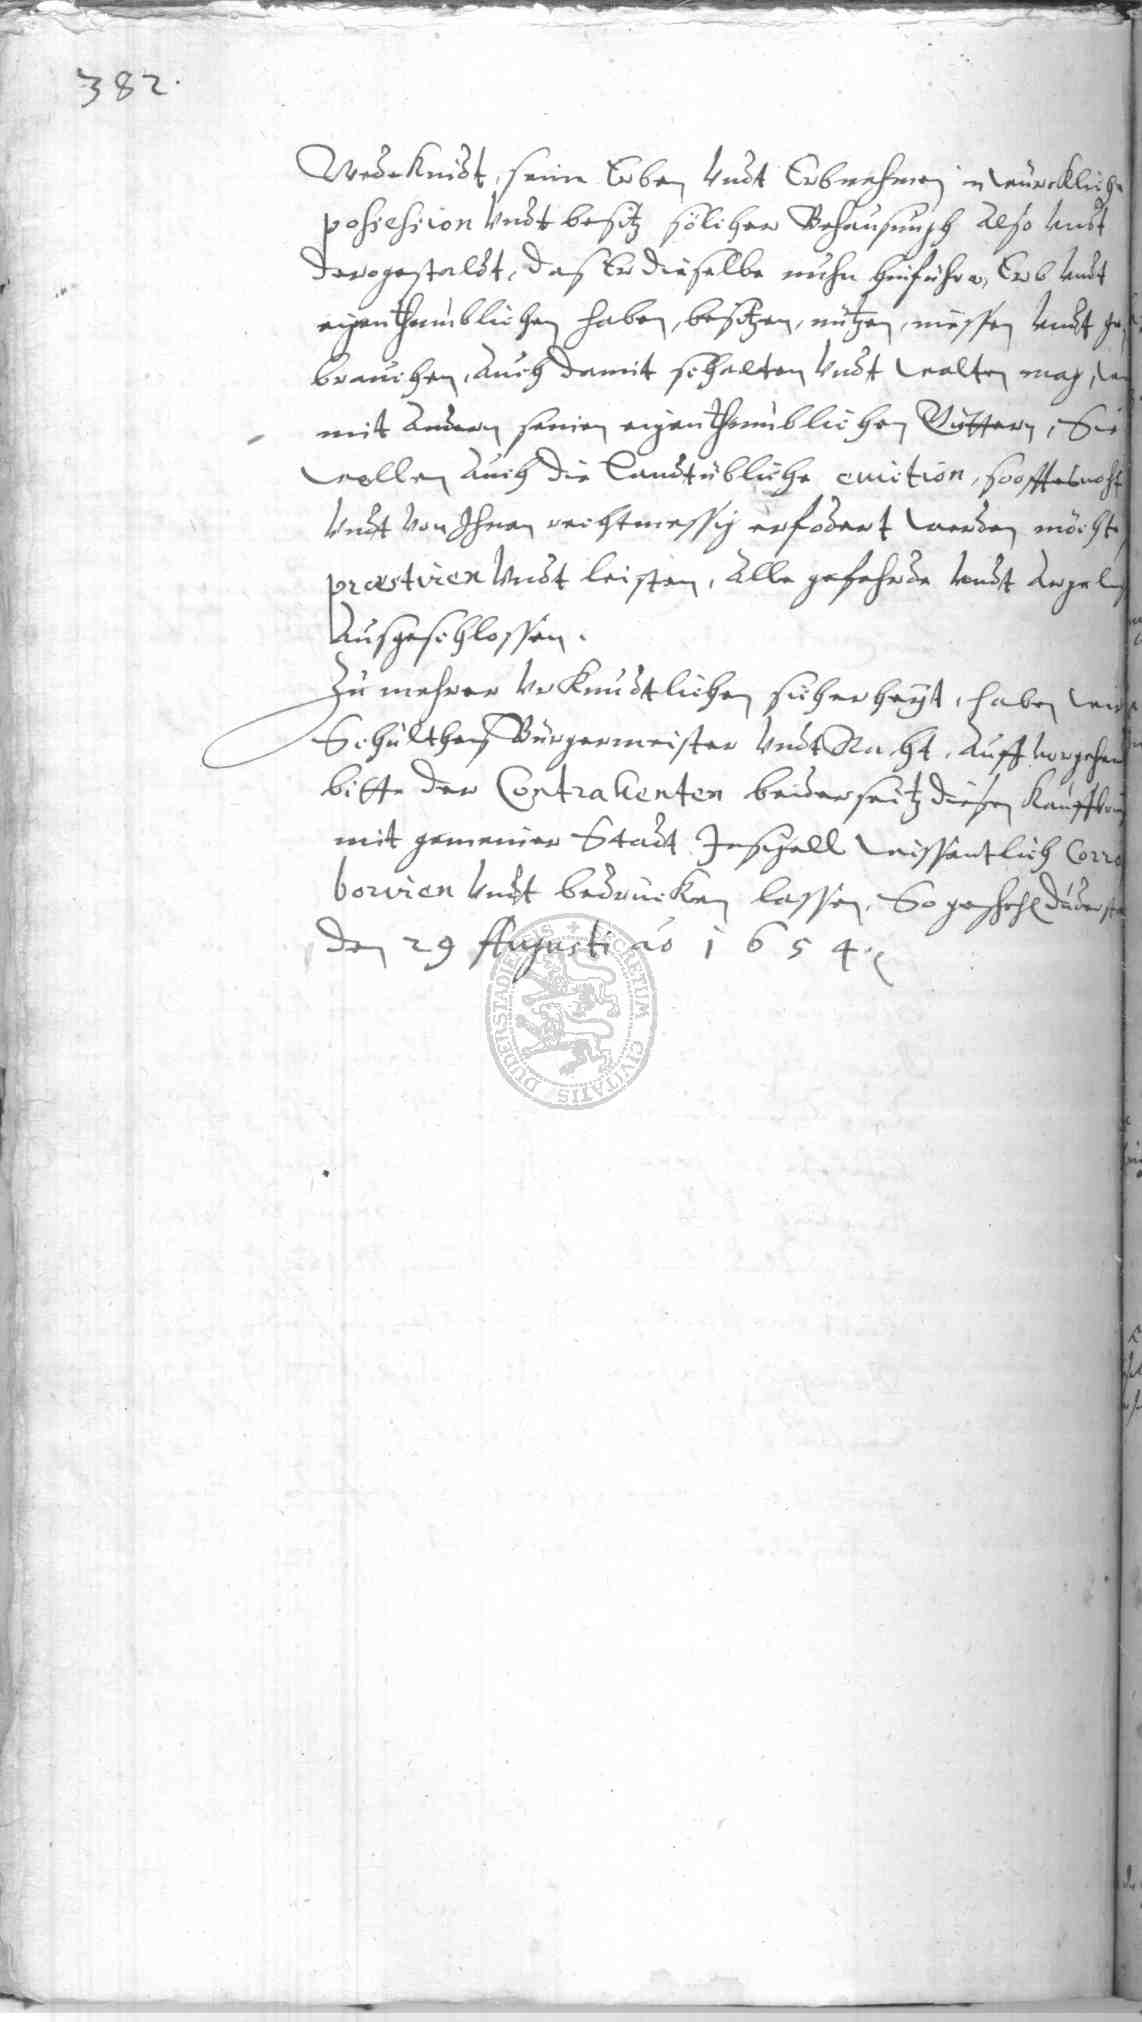 382.
Wedeknidt, seine Erben Undt Erbnehmen in würckliche
possession Undt besitz sölicher Behausungh Also Undt
derogestaldt, das Er dieselbe nuhn hinführo, Erb Undt
eigenthumblichen haben, besitzen, nützen, niessen Undt ge
brauchen, Auch damit schalten Undt walten mag,
mit Andern seinen eigenthumblichen Güttern, Sie
wollen Auch die Landtübliche eviction, so offt es noht
Undt von Ihnen rechtmessig erfodert werden möchte,
præstiren Undt leisten, Alle gefehrde Undt Argelist
Ausgeschlossen.
Zu mehrer Urkundtlichen sicherheyt, haben wir
Schultheis Bürgermeister Undt Raht, Auff vorgehen
bitte der Contrahenten beiderseitz diesen Kauffbrieff
mit gemeiner Stadt Insigell wissentlich Corro
boriren Undt bedrucken lassen, So geschehen Duderstadt
den 29 Augusti ao 1654.
DUDERSTADIENSIS SECRETUM CIVITATIS